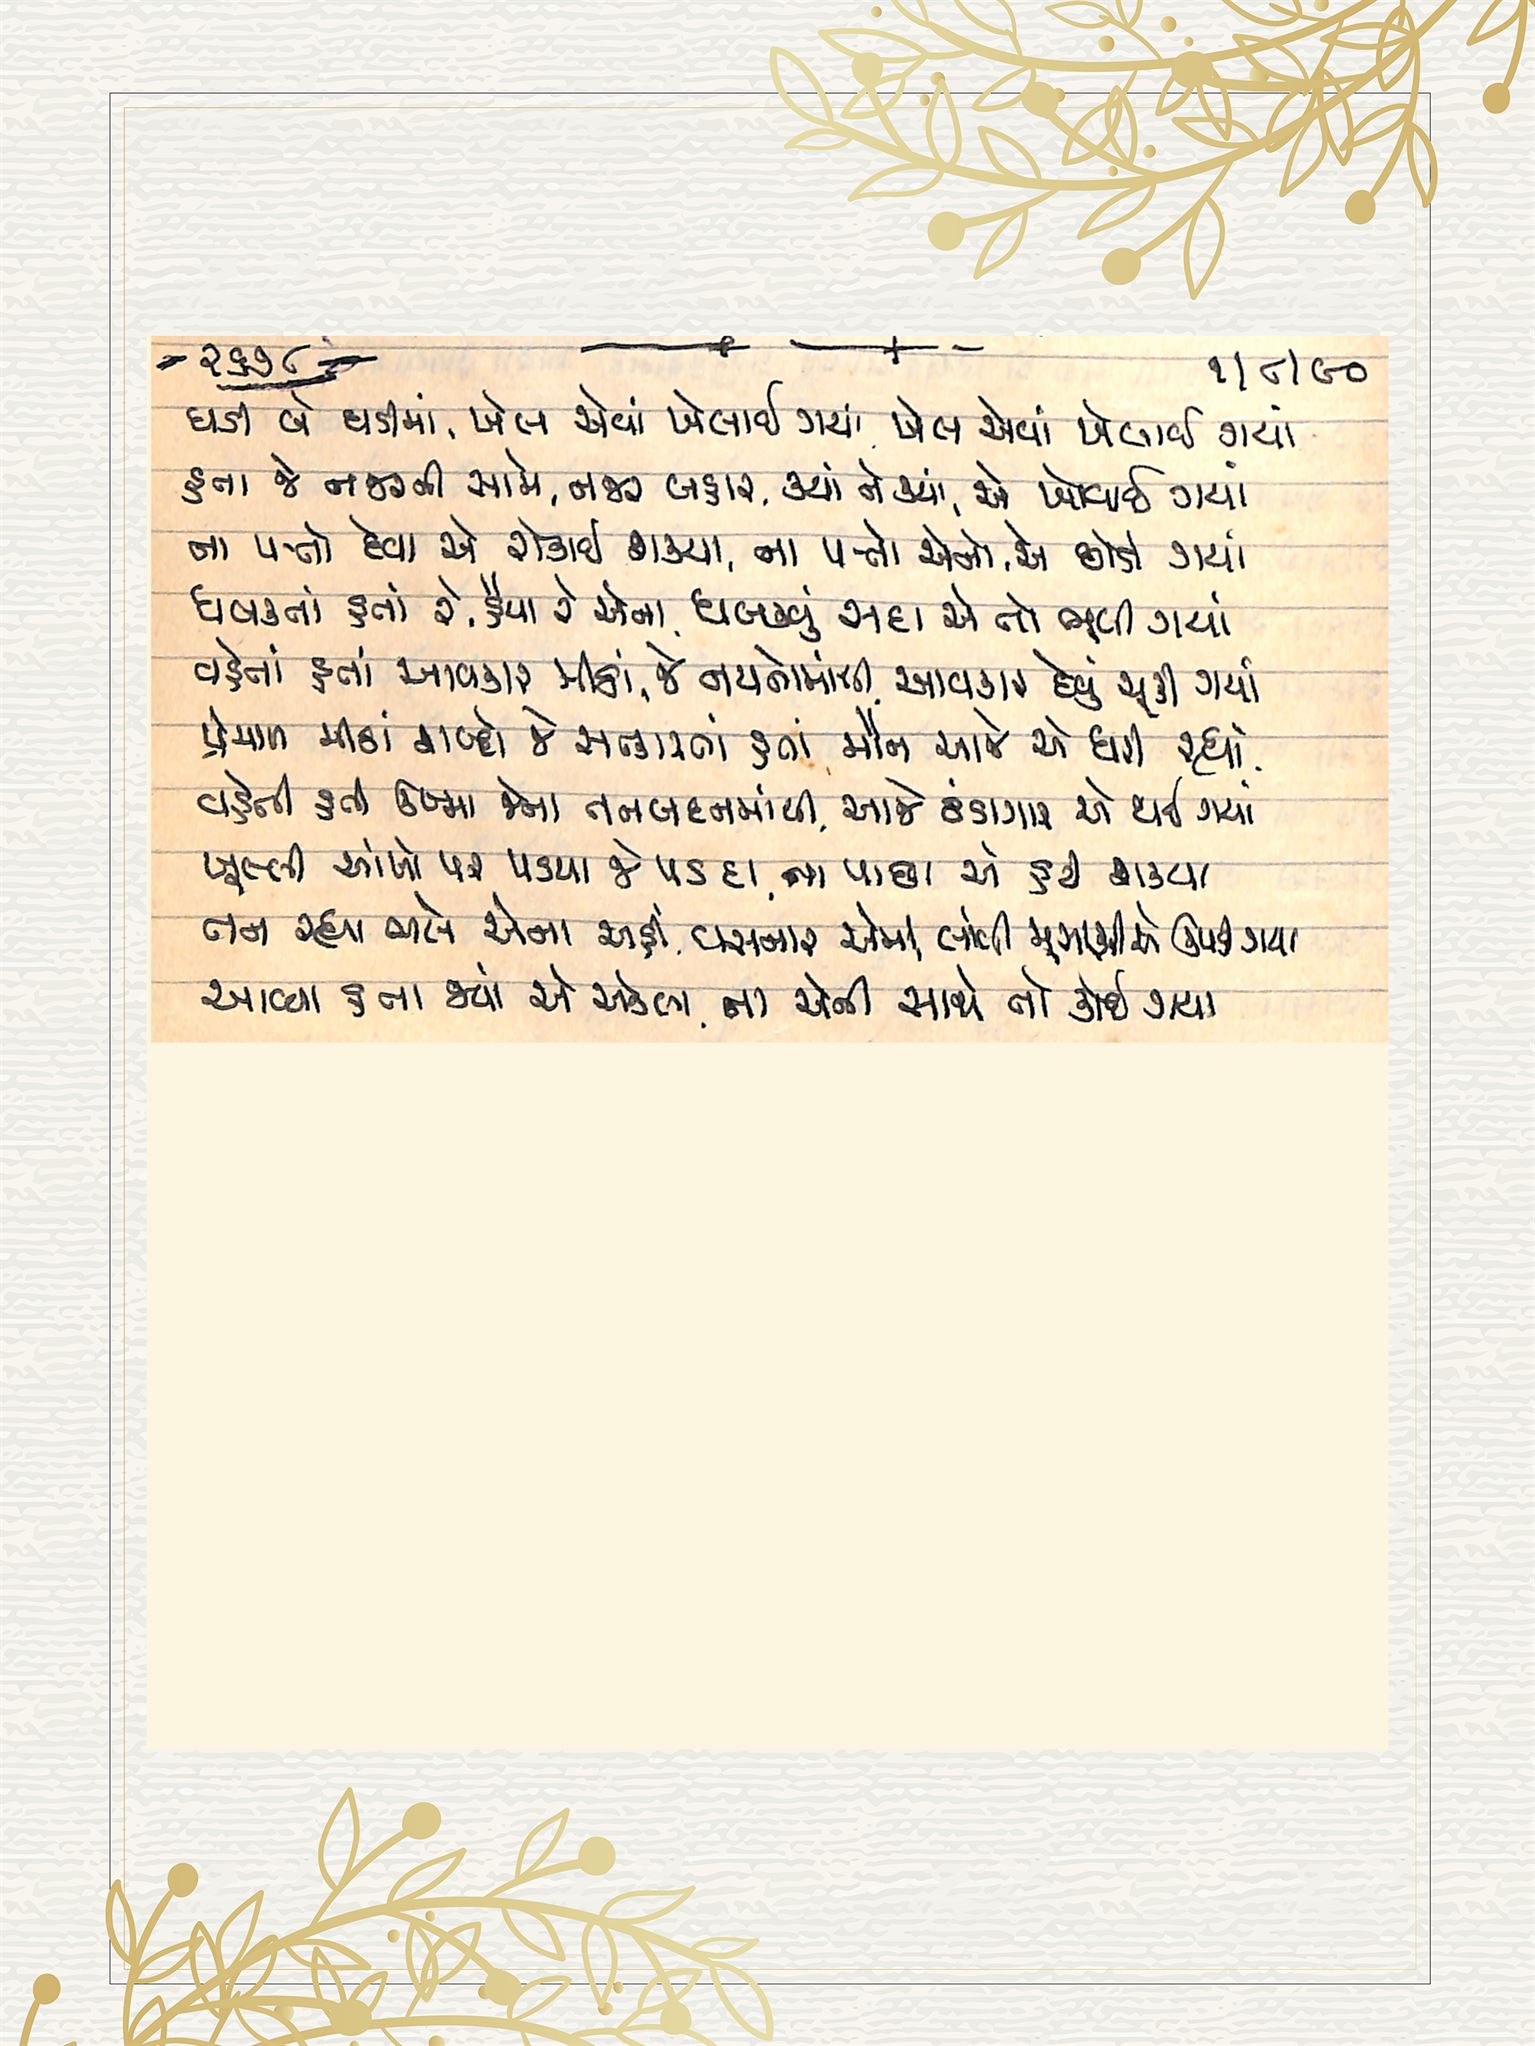 ૨૬૭૮ ૧/૮/૯૦
ઘડી બે ઘડીમાં, ખેલ એવાં ખેલાઈ ગયાં, ખેલ એવાં ખેલાઈ ગયાં
હતા જે નજરની સામે, નજર બહાર, ક્યાં ને ક્યાં, એ ખોવાઈ ગયાં
ના પત્તો દેવા એ રોકાઈ શક્યા, ના પત્તો એનો, એ છોડી ગયાં
ધબકતાં હતાં રે, હૈયા રે એના, ધબકવું સદા એ તો ભૂલી ગયાં
વહેતાં હતાં આવકાર મીઠાં, જે નયનોમાંથી, આવકાર દેવું ચૂકી ગયાં
પ્રેમાળ મીઠાં શબ્દો જે સત્કારતાં હતાં, મૌન આજે એ ધરી રહ્યાં.
વહેતી હતી ઉષ્મા જેના તનબદનમાંથી, આજે ઠંડાગાર એ થઈ ગયાં
ખુલ્લી આંખો પર પડયા જે પડદા, ના પાછા એ હટી શક્યા
તન રહ્યા ભલે એના અહીં, વસનાર એમાં, લાંબી મુસાફરીએ ઉપડી ગયા
આવ્યા હતા જ્યાં એ એકલા, ના એની સાથે તો કોઈ ગયા